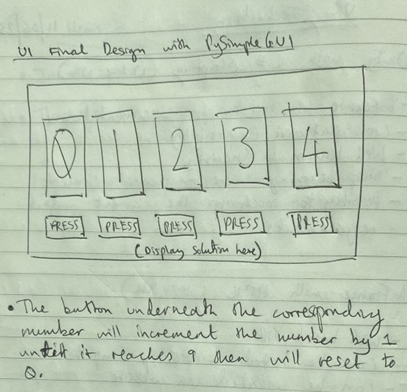 UI Final Design with PySimpleGUI
0 1 2 3 4
PRESS PRESS PRESS PRESS PRESS
(Display solution here)
• The button underneath the corresponding
number will increment the number by 1
until it reaches 9 then will reset to
0.